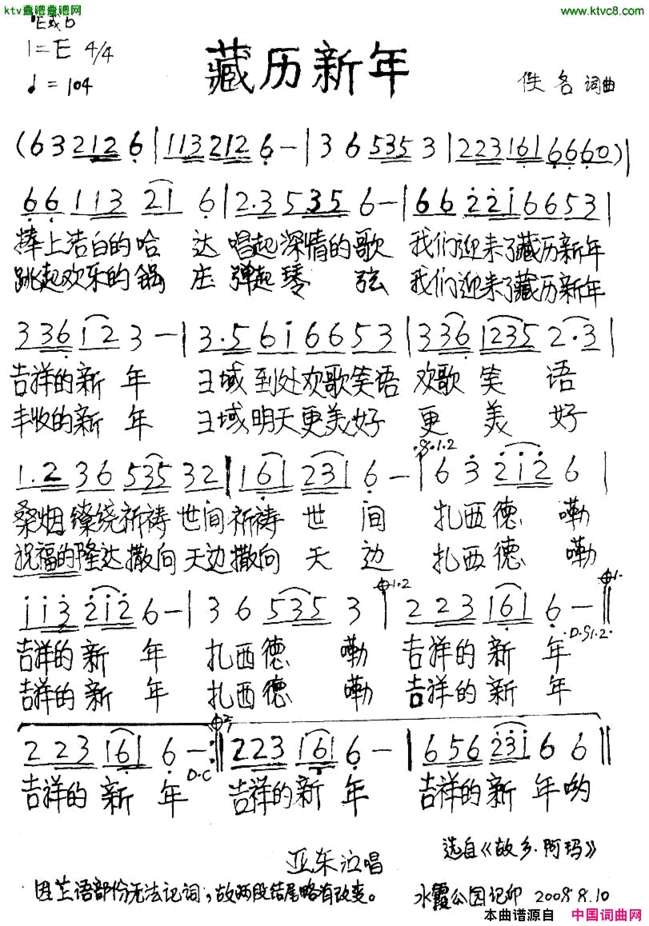 ktv曲谱谱谱网
www.ktvc8.com
♭E或D
1=E 4/4
♩=104
藏历新年
佚名 词曲
(6 3 2 1 2 6 | 1 1 3 2 1 2 6 - | 3 6 5 3 5 3 | 2 2 3 1 6 1 6 6 6 0) |
6 6 1 1 3 2 1 6 | 2·3 5 3 3 5 6 - | 6 6 2 2 1 6 6 5 3 |
捧上洁白的哈达 唱起深情的歌 我们迎来了藏历新年
跳起欢乐的锅庄 弹起琴弦 我们迎来了藏历新年
3 3 6 1 2 3 - | 3·5 6 1 6 6 5 3 | 3 3 6 1 2 3 5 2·3 |
吉祥的新年 域到处欢歌笑语 欢歌笑语
丰收的新年 域明天更美好 更美好
1·2 3 6 5 3 5 3 2 | 1 6 1 2 3 1 6 - | 6 3 2 1 2 6 |
桑烟缭绕祈祷世间祈祷世间 扎西德嘞
祝福的隆达撒向天边撒向天边 扎西德嘞
1 1 3 2 1 2 6 - | 3 6 5 3 5 3 | 2 2 3 1 6 1 6 - ||
D.S1.2.
吉祥的新年 扎西德嘞 吉祥的新年
吉祥的新年 扎西德嘞 吉祥的新年
2 2 3 1 6 1 6 - :|| 2 2 3 1 6 1 6 - | 6 5 6 2 3 1 6 6 ||
D.C
吉祥的新年 吉祥的新年 吉祥的新年哟
选自《故乡·阿玛》
亚东演唱
因芷语部份无法记词,故两段结尾略有改变。
水霞公园记印 2008.8.10
本曲谱源自 中国词曲网